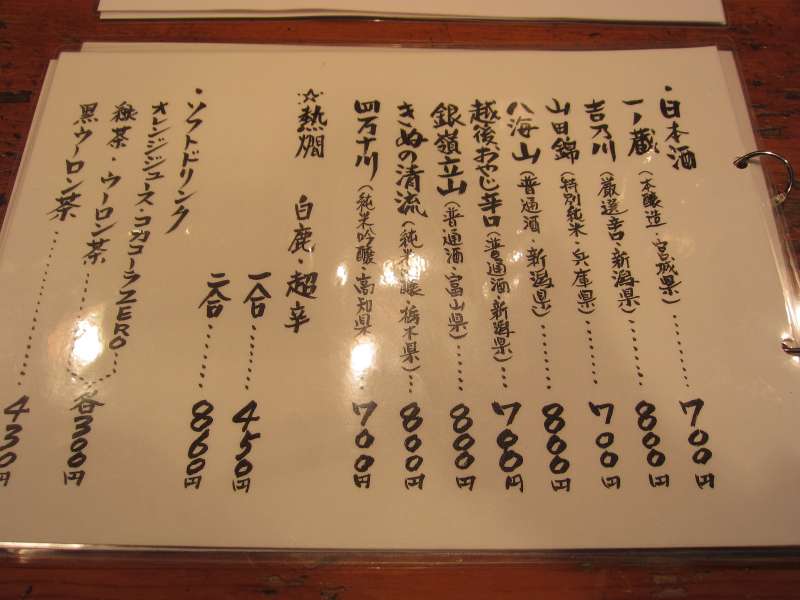 ・日本酒
一ノ蔵(本醸造・宮城県)……700円
吉乃川(厳選・新潟県)……800円
山田錦(特別純米・兵庫県)……700円
八海山(普通酒・新潟県)……800円
越後おやじ辛口(普通酒・新潟県)……700円
銀嶺立山(普通酒・富山県)……800円
きぬの清流(純米醸・栃木県)……800円
四万十川(純米吟醸・高知県)……700円
☆熱燗 白鹿・超辛
一合……450円
二合……860円
・ソフトドリンク
オレンジジュース・コカコーラZERO…
緑茶・ウーロン茶……各300円
黒ウーロン茶……430円